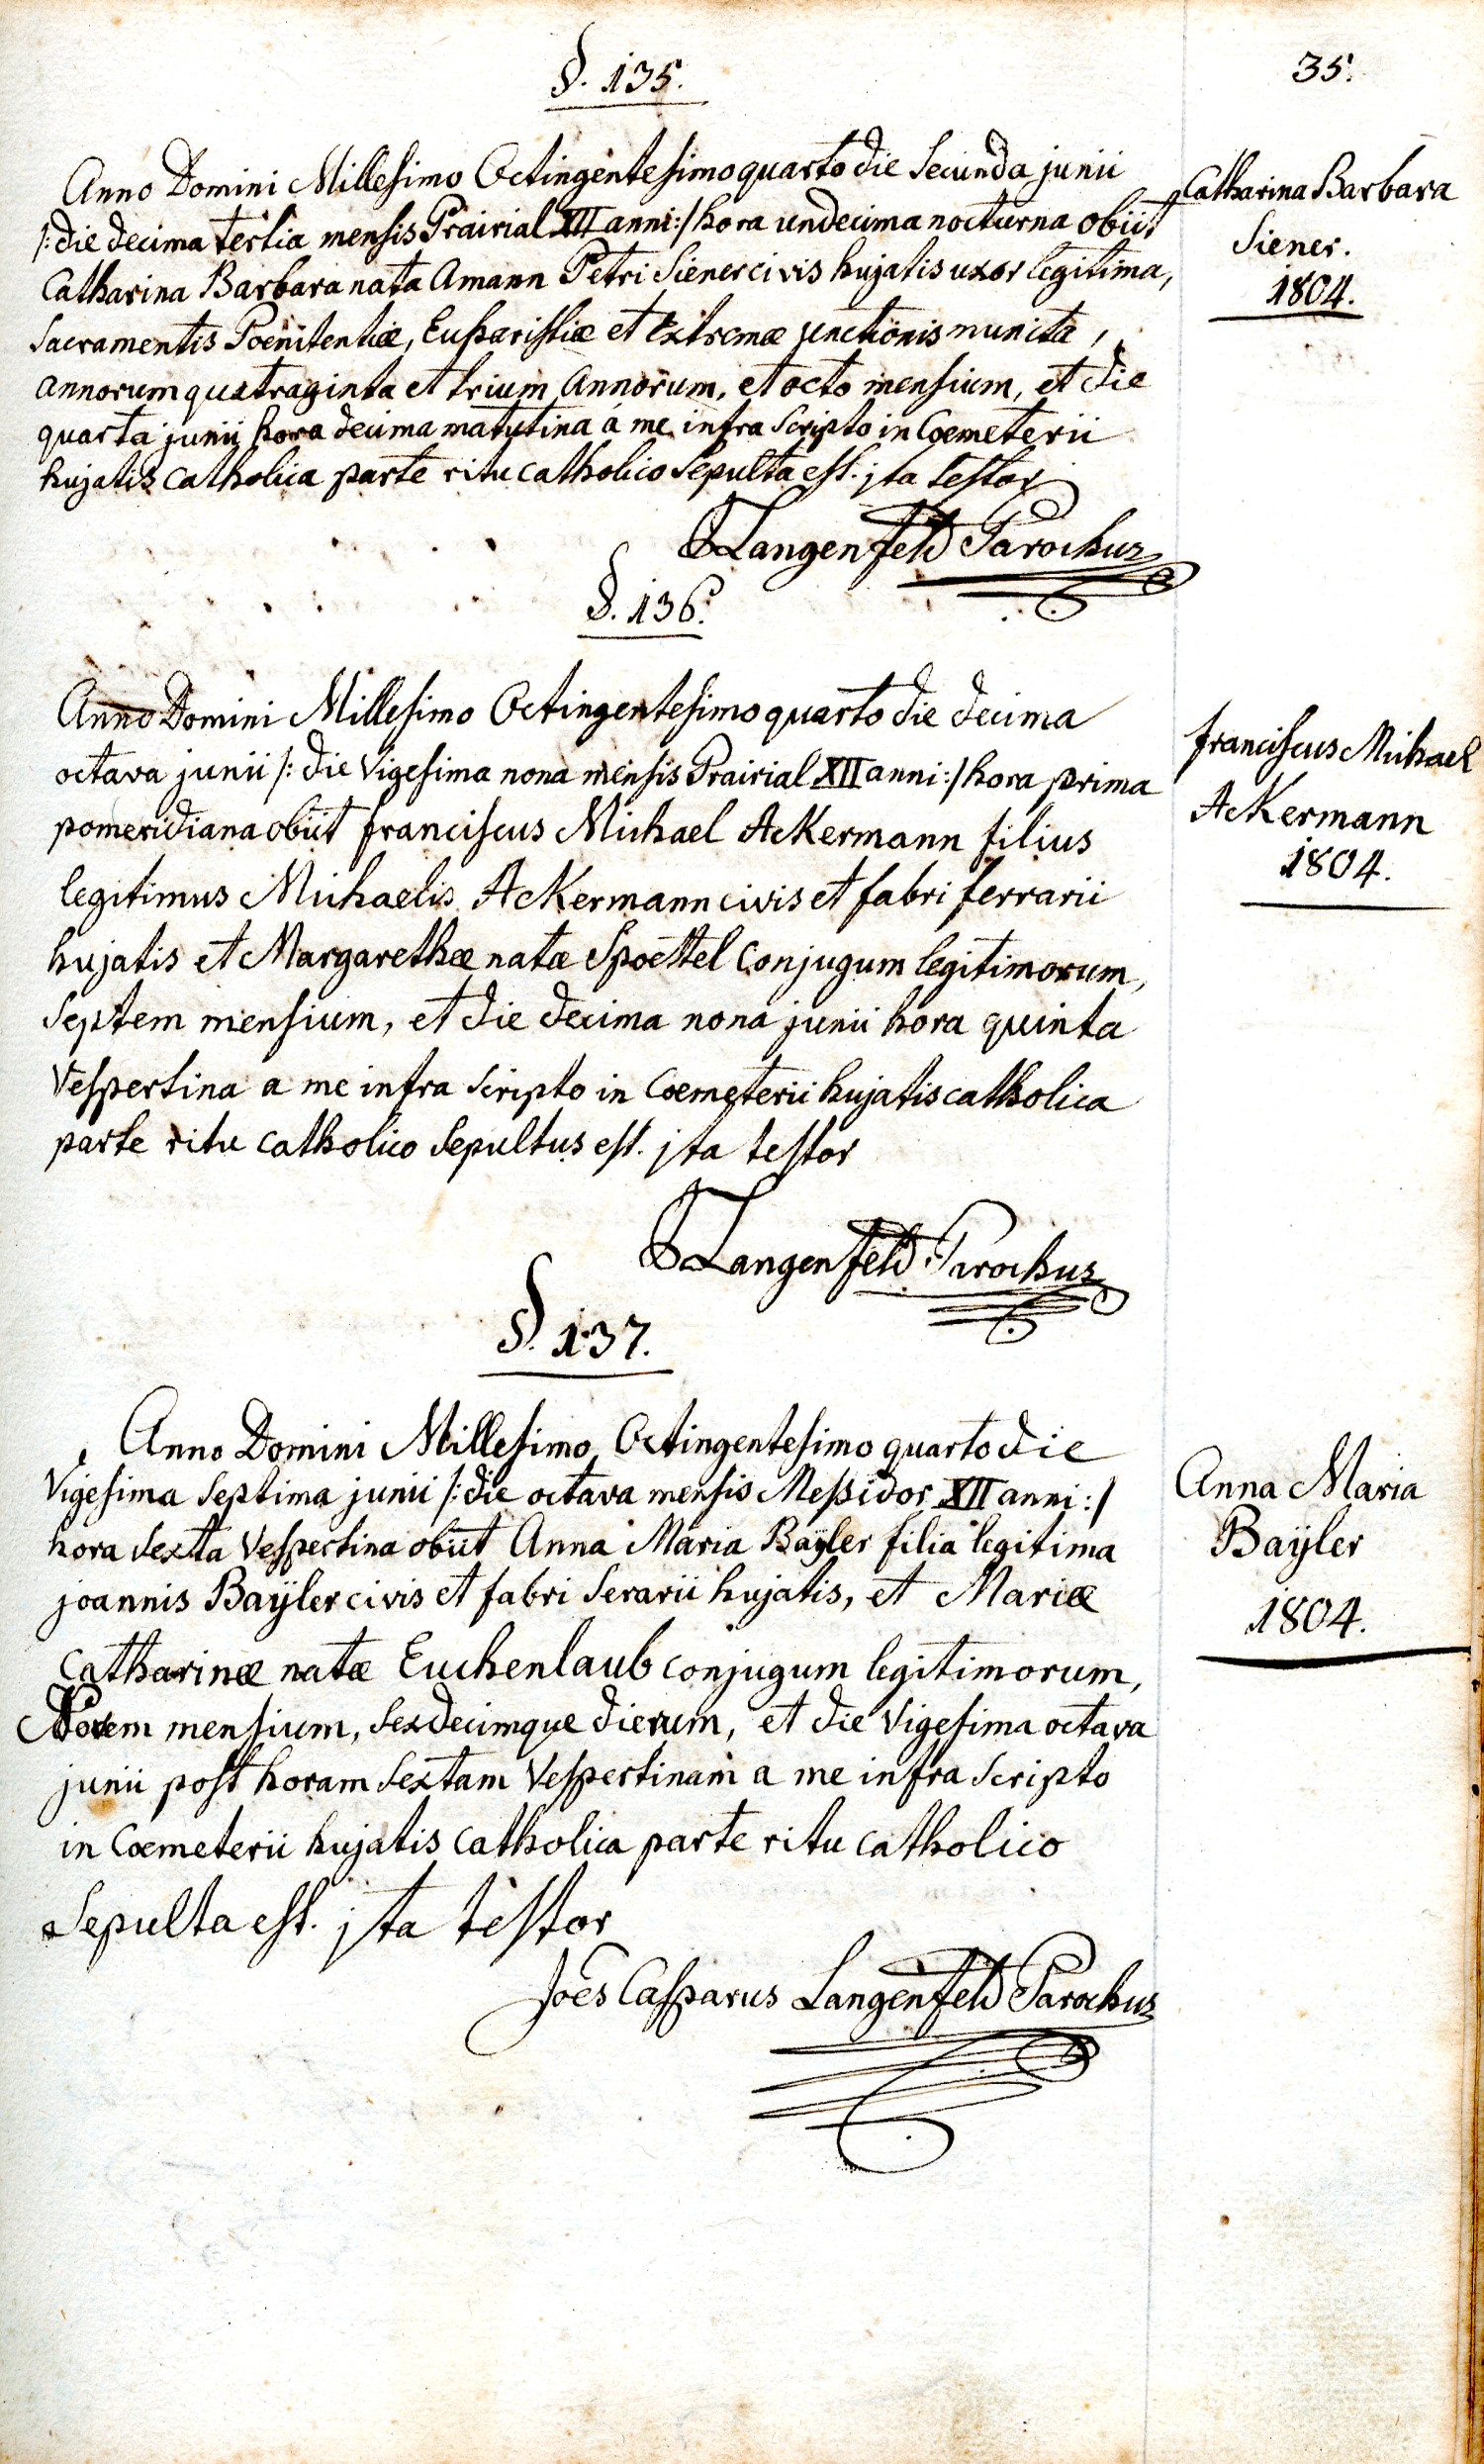 35.
§. 135.
Anno Domini Millesimo Octingentesimo quarto die secunda junii
/: die decima tertia mensis Prairial XII anni :/ hora undecima nocturna obiit
Catharina Barbara nata Amann Petri Siener civis hujatis uxor legitima,
sacramentis Poenitentiæ, Eucharistiæ et Extremæ unctionis munita,
annorum quatraginta et trium annorum, et octo mensium, et die
quarta junii hora decima matutina á me infra scripto in Coemeterii
hujatis catholica parte ritu catholico sepulta est. jta testor
Langenfeld Parochus
Catharina Barbara
Siener.
1804.
§. 136.
Anno Domini Millesimo Octingentesimo quarto die decima
octava junii /: die vigesima nona mensis Prairial XII anni :/ hora prima
pomeridiana obiit franciscus Michael Ackermann filius
legitimus Michaelis Ackermann civis et fabri ferrarii
hujatis et Margarethæ natæ Spoettel conjugum legitimorum,
septem mensium, et die decima nona junii hora quinta
vespertina a me infra scripto in Coemeterii hujatis catholica
parte ritu catholico sepultus est. jta testor
Langenfeld Parochus
franciscus Michael
Ackermann
1804.
§. 137.
Anno Domini Millesimo Octingentesimo quarto die
vigesima septima junii /: die octava mensis Meßidor XII anni :/
hora sexta vespertina obiit Anna Maria Baÿler filia legitima
joannis Baÿler civis et fabri serarii hujatis, et Mariæ
Catharinæ natæ Euchenlaub conjugum legitimorum,
Novem mensium, sexdecimque dierum, et die vigesima octava
junii post horam sextam vespertinam a me infra scripto
in Coemeterii hujatis catholica parte ritu catholico
sepulta est. jta testor
Joēs Casparus Langenfeld Parochus
Anna Maria
Baÿler
1804.